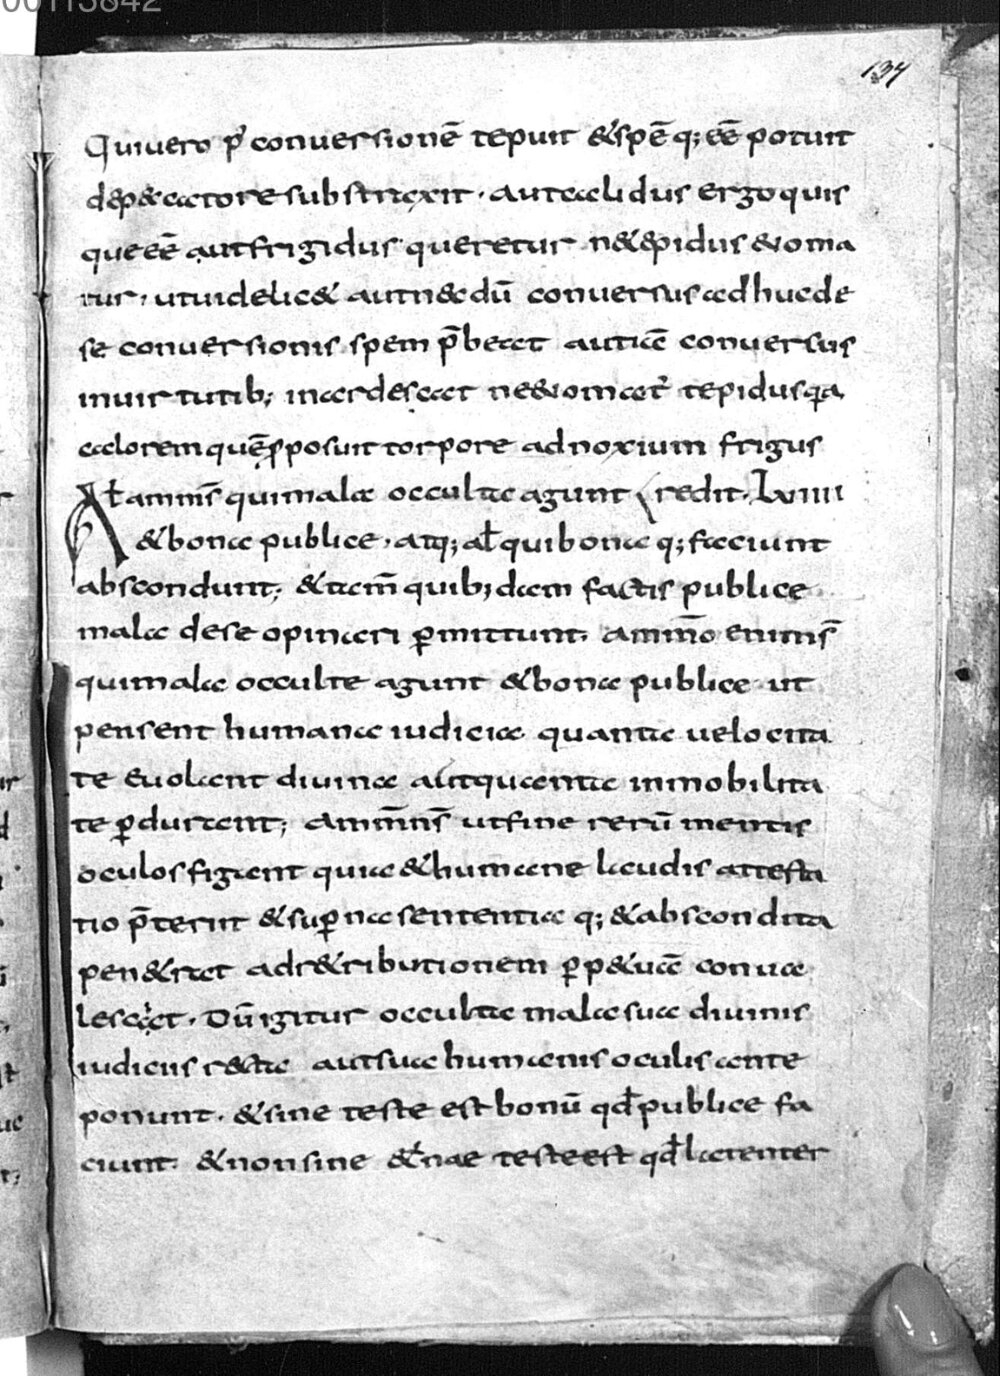 00113842
137
Quiuero p̓ conuersionē tepuit &spē q; eē potuit
dep&catore subtraxit · aut calidus ergo quis
que eē aut frigidus queretur n&epidus &uoma
tur, ut uidelic& aut n&dū conuersus ad huc de
se conuersionis spem p̄beat aut iā conuersus
in uirtutib; inardescat ne &uomat̓ tepidus q̄a
calorem quē p̱posuit torpore ad noxium frigus
Aƚ ammn̄s qui mala occulta agunt redit · Lxiiii
& bona publice, atq; aƚ qui bona q; faciunt
abscondunt; & tam̄ quib;dam factis publice
mala de se opinari p̱mittunt · ammn̄o enim s̄
qui mala occulte agunt & bona publice ut
pensent humana iudicia quanta uelocita
te euolant diuina aut quanta inmobilita
te p̱durant; Ammn̄n̄s ut fine rerū mentis
oculos figant quia & humane laudis attesta
tio p̄terit & sup̱na sententia q; & abscondita
pen&rat ad r&ributionem p̱p&uā conua
lescat · Dū igitur occulta mala sua diuinis
iudiciis r&cta aut sua humanis oculis ante
ponunt · & sine teste est bonū qđ publice fa
ciunt · & non sine &̓nae teste est qđ latenter